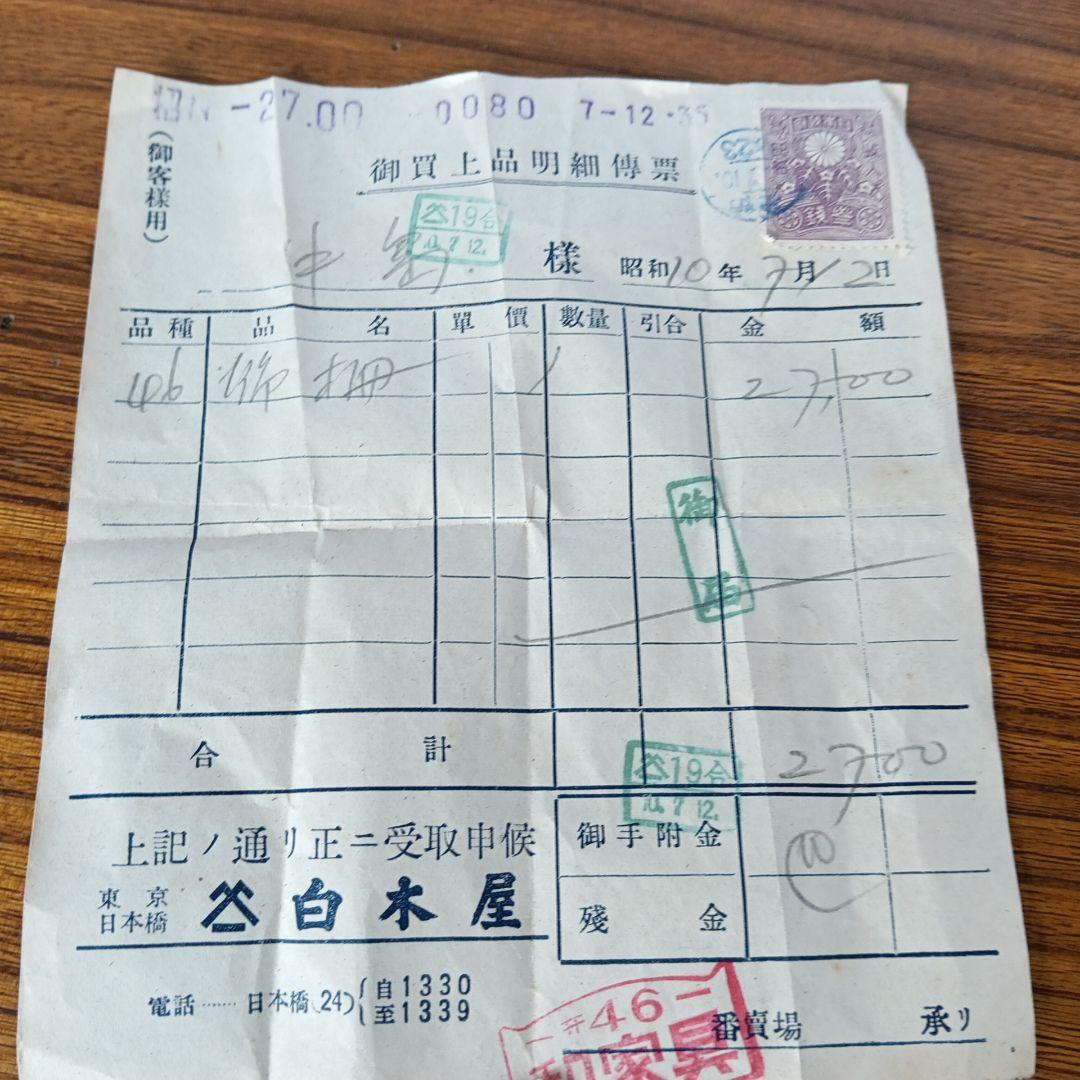 -27.00 0080 7-12.35
(御客様用)
御買上品明細傳票
19合
10.7.12.
様 昭和10年7月12日
品種 品名 單價 數量 引合 金額
406 1 27,00
御
合計 27,00
19合
10.7.12.
上記ノ通リ正ニ受取申候
御手附金
東京
日本橋 白木屋
殘金
電話……日本橋(24){自1330
至1339
46
番賣場 承リ
和家具